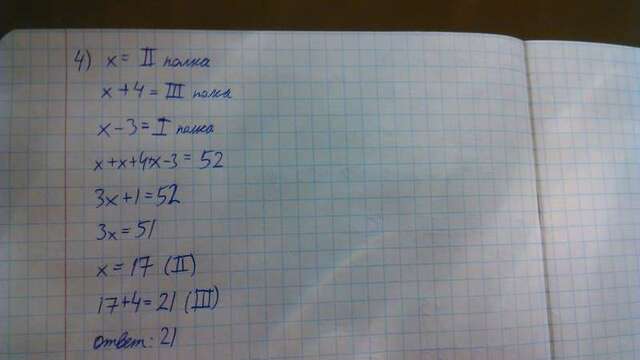 4) x = II полка
x + 4 = III полка
x - 3 = I полка
x + x + 4 + x - 3 = 52
3x + 1 = 52
3x = 51
x = 17 (II)
17 + 4 = 21 (III)
ответ: 21